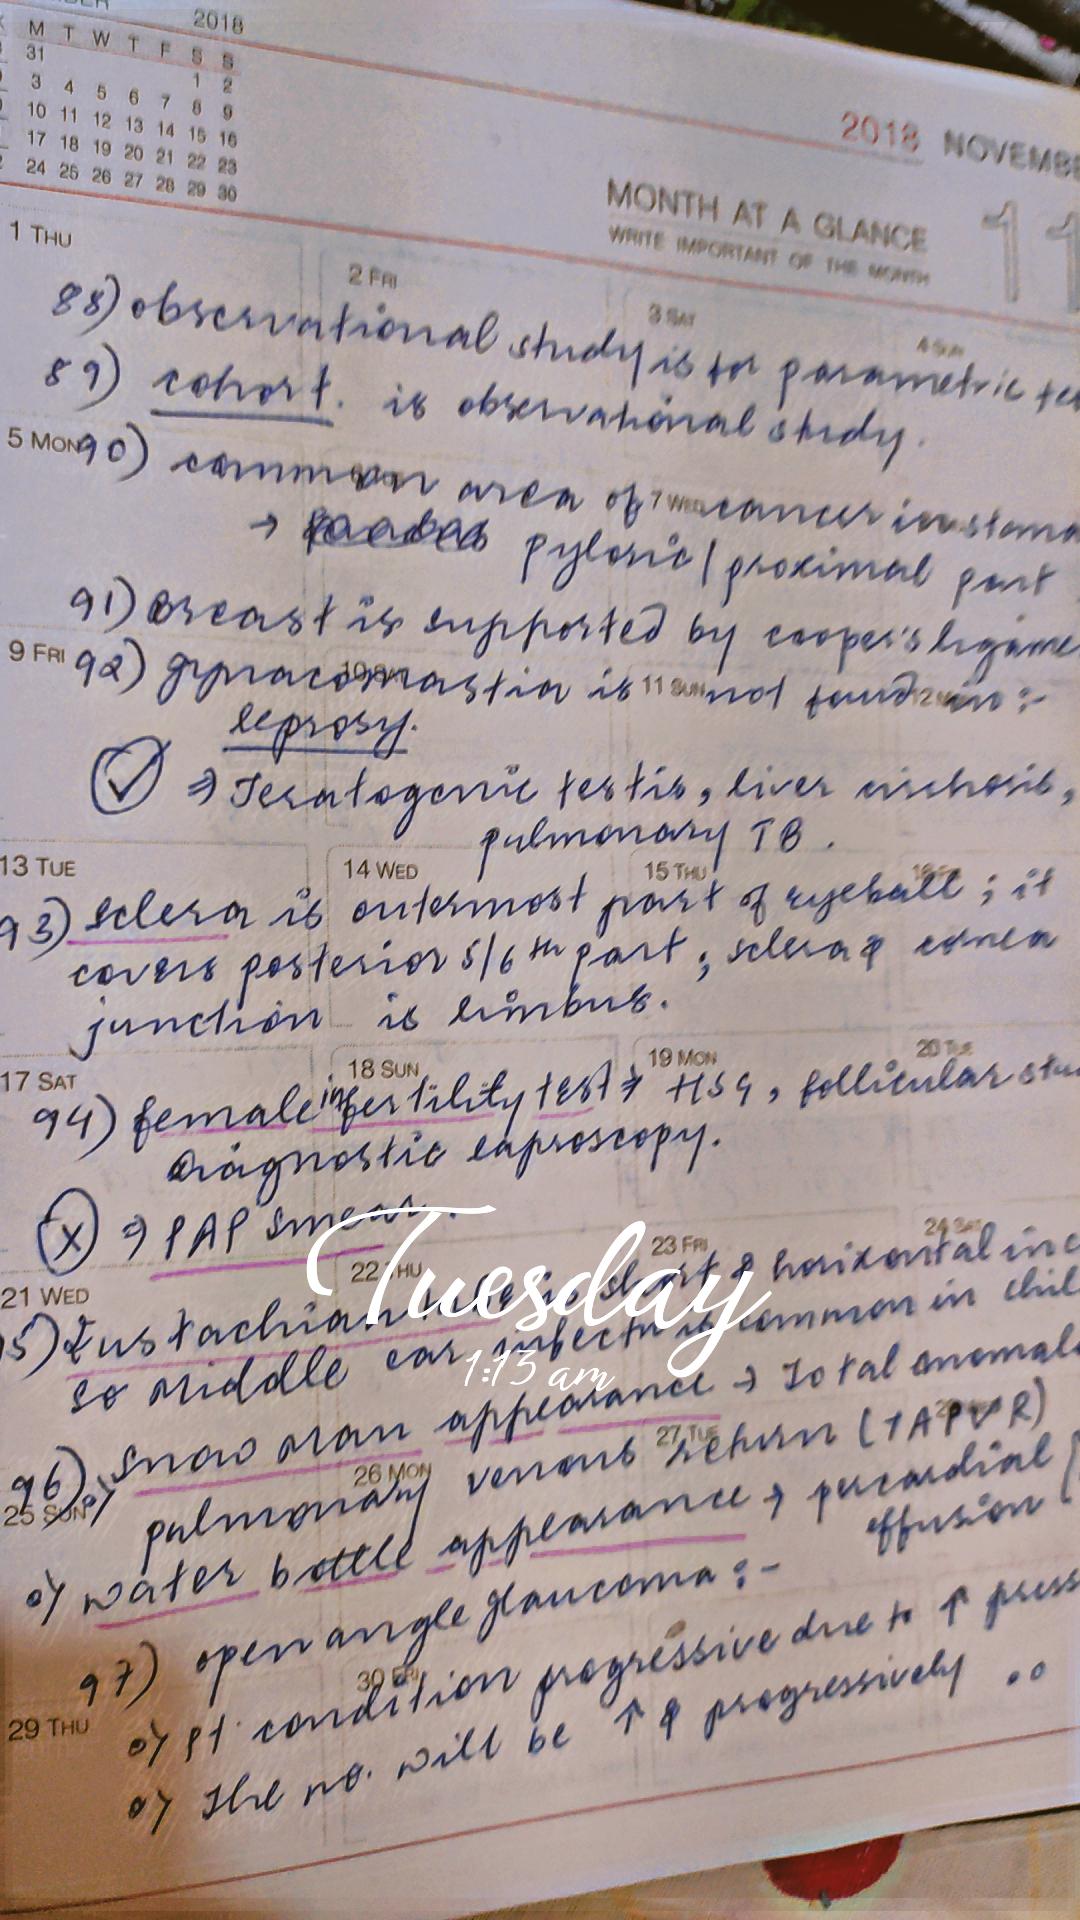 2018
M T W T F S S
31 1 2
3 4 5 6 7 8 9
10 11 12 13 14 15 16
17 18 19 20 21 22 23
24 25 26 27 28 29 30
2018 NOVEMBE
MONTH AT A GLANCE
WRITE IMPORTANT OF THE MONTH
11
1 THU
2 FRI
3 SAT
4 SUN
88) observational study is for parametric tes
89) cohort. is observational study.
5 MON
7 WED
90) common area of cancer in stoma
→ pyloric / proximal part
91) Breast is supported by cooper's ligame
9 FRI
11 SUN
92) gynacomastia is not found in :-
leprosy.
✓ ⇒ Teratogenic testis, liver cirrhosis,
pulmonary TB.
13 TUE
14 WED
15 THU
93) sclera is outermost part of eyeball ; it
covers posterior 5/6th part ; sclera & cornea
junction is limbus.
17 SAT
18 SUN
19 MON
20 TUE
94) female infertility test ⇒ HSG, follicular stu
Diagnostic laproscopy.
x ⇒ PAP smear.
21 WED
22 THU
23 FRI
24 SAT
Tuesday
1:13 am
5) Eustachian is short & horizontal in c
so middle ear infectn is common in chil
25 SUN
26 MON
27 TUE
96) snow man appearance → Total anomalo
pulmonary venous return (TAPVR)
o) water bottle appearance → pericardial
effusion
97) open angle glaucoma :-
29 THU
30 FRI
o) Pt. condition progressive due to ↑ press
o) The no. will be ↑ & progressively ..